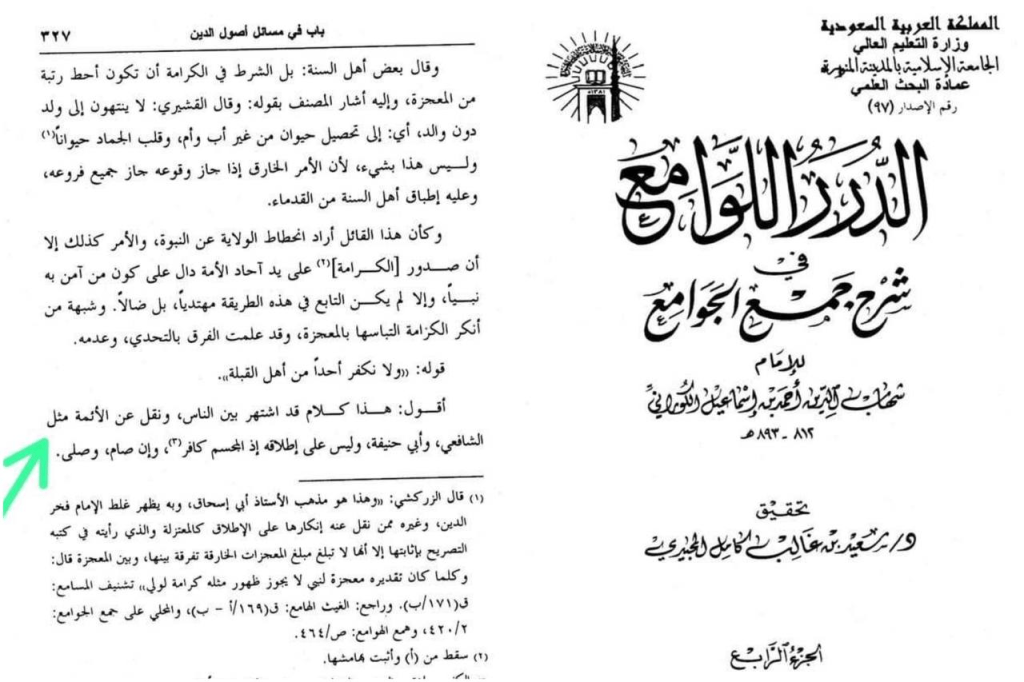 المملكة العربية السعودية
وزارة التعليم العالي
الجامعة الإسلامية بالمدينة المنورة
عمادة البحث العلمي
رقم الإصدار (٩٧)
الدُّرَرُ اللَّوَامِعُ
في
شَرْحِ جَمْعِ الجَوَامِعِ
للإمَامِ
شهاب الدين أحمد بن إسماعيل الكوراني
٨١٢-٨٩٣ هـ
تحقيق
د/ سعيد بن غالب كامل المجيدي
الجزء الرابع
باب في مسائل أصول الدين ٣٢٧
وقال بعض أهل السنة: بل الشرط في الكرامة أن تكون أحط رتبة
من المعجزة، وإليه أشار المصنف بقوله: وقال القشيري: لا ينتهون إلى ولد
دون والد، أي: إلى تحصيل حيوان من غير أب وأم، وقلب الجماد حيواناً(١)
ولـــيس هذا بشيء، لأن الأمر الخارق إذا جاز وقوعه جاز جميع فروعه،
وعليه إطباق أهل السنة من القدماء.
وكأن هذا القائل أراد انحطاط الولاية عن النبوة، والأمر كذلك إلا
أن صـــدور [الكـــرامة](٢) على يد آحاد الأمة دال على كون من آمن به
نبـــياً، وإلا لم يكـــن التابع في هذه الطريقة مهتدياً، بل ضالاً. وشبهة من
أنكر الكرامة التباسها بالمعجزة، وقد علمت الفرق بالتحدي، وعدمه.
قوله: «ولا نكفر أحداً من أهل القبلة».
أقـــول: هـــذا كـــلام قد اشتهر بين الناس، ونقل عن الأئمة مثل
الشافعي، وأبي حنيفة، وليس على إطلاقه إذ المجسم كافر(٣)، وإن صام، وصلى.
(١) قال الزركشي: «وهذا هو مذهب الأستاذ أبي إسحاق، وبه يظهر غلط الإمام فخر
الدين، وغيره ممن نقل عنه إنكارها على الإطلاق كالمعتزلة والذي رأيته في كتبه
التصريح بإثباتها إلا أنها لا تبلغ مبلغ المعجزات الخارقة تفرقة بينها، وبين المعجزة قال:
وكلما كان تقديره معجزة لنبي لا يجوز ظهور مثله كرامة لولي» تشنيف المسامع:
ق(١٧١/ب). وراجع: الغيث الهامع: ق(١٦٩/أ - ب)، والمحلي على جمع الجوامع:
٤٢٠/٢، وهمع الهوامع: ص/٤٦٤.
(٢) سقط من (أ) وأثبت بهامشها.